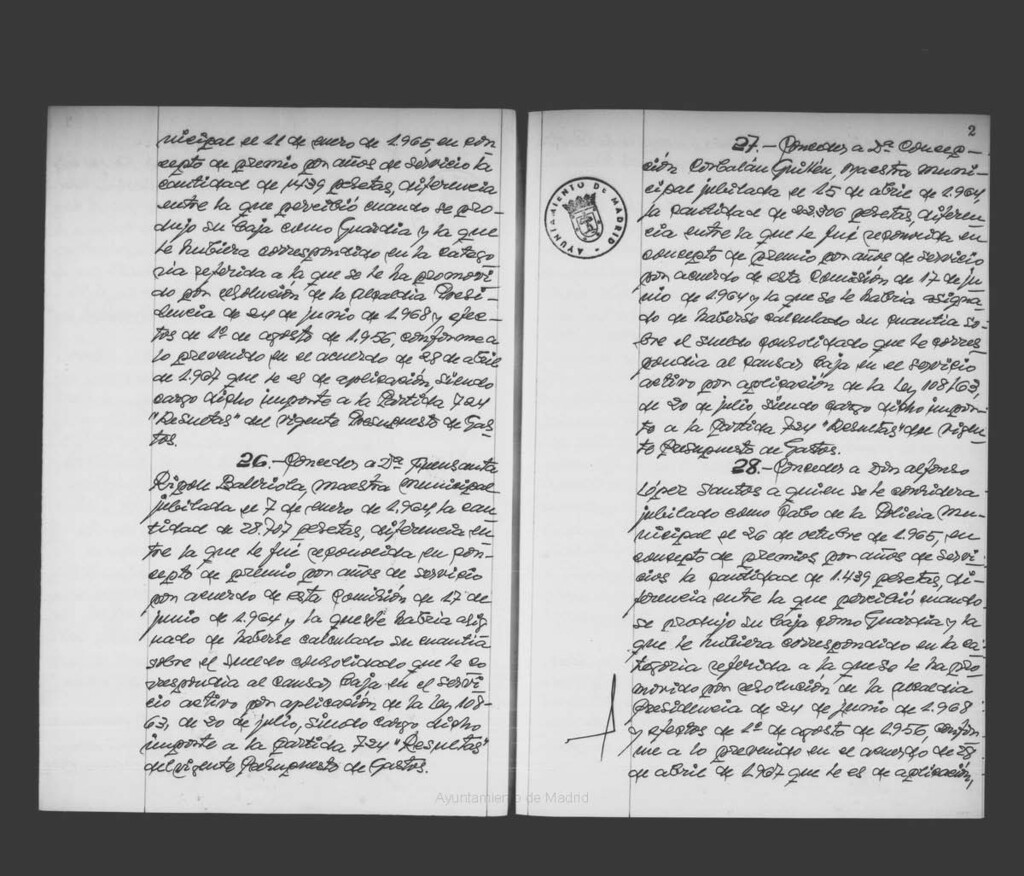 nicipal el 11 de enero de 1.965, en con
cepto de premio por años de servicio la
cantidad de 1.439 pesetas, diferencia
entre la que percibió cuando se pro-
dujo su baja como Guardia y la que
le hubiera correspondido en la catego
ría referida a la que se le ha promovi
do por resolución de la Alcaldía Presi-
dencia de 24 de junio de 1.968 y efec-
tos de 1º de agosto de 1.956, conforme a
lo prevenido en el acuerdo de 28 de abril
de 1.967 que le es de aplicación, siendo
cargo dicho importe a la Partida 724
"Resultas" del vigente Presupuesto de Gas
tos.
26.- Conceder a Dª
maestra municipal
jubilada el 7 de enero de 1.964 la can
tidad de 28.707 pesetas, diferencia en
tre la que le fué reconocida en con-
cepto de premio por años de servicio
por acuerdo de esta Comisión de 17 de
junio de 1.964 y la que se le habría asig
nado de haberse calculado su cuantía
sobre el sueldo consolidado que le co
rrespondía al causar baja en el servi
cio activo por aplicación de la Ley 108-
63, de 20 de julio, siendo cargo dicho
importe a la partida 724 "Resultas"
del vigente Presupuesto de Gastos.
2
27.- Conceder a Dª Concep-
ción Corbalán Guillén, maestra muni-
cipal jubilada el 15 de abril de 1.964,
la cantidad de pesetas, diferen
cia entre la que le fué reconocida en
concepto de premio por años de servicio
por acuerdo de esta Comisión de 17 de ju
nio de 1.964 y la que se le habría asigna
do de haberse calculado su cuantía so-
bre el sueldo consolidado que le corres
pondía al causar baja en el servicio
activo por aplicación de la Ley 108/63,
de 20 de julio, siendo cargo dicho impor-
te a la partida 724 "Resultas" del vigen-
te Presupuesto de Gastos.
28.- Conceder a Don Alfonso
López Santos a quien se le considera
jubilado como Cabo de la Policía Mu-
nicipal el 26 de octubre de 1.965, en
concepto de premios por años de servi-
cios la cantidad de 1.439 pesetas, di-
ferencia entre la que percibió cuando
se produjo su baja como Guardia y la
que le hubiera correspondido en la ca-
tegoría referida a la que se le ha pro-
movido por resolución de la Alcaldía
Presidencia de 24 de junio de 1.968
y efectos de 1º de agosto de 1.956, confor-
me a lo prevenido en el acuerdo de 28
de abril de 1.967 que le es de aplicación,
AYUNTAMIENTO DE MADRID
Ayuntamiento de Madrid